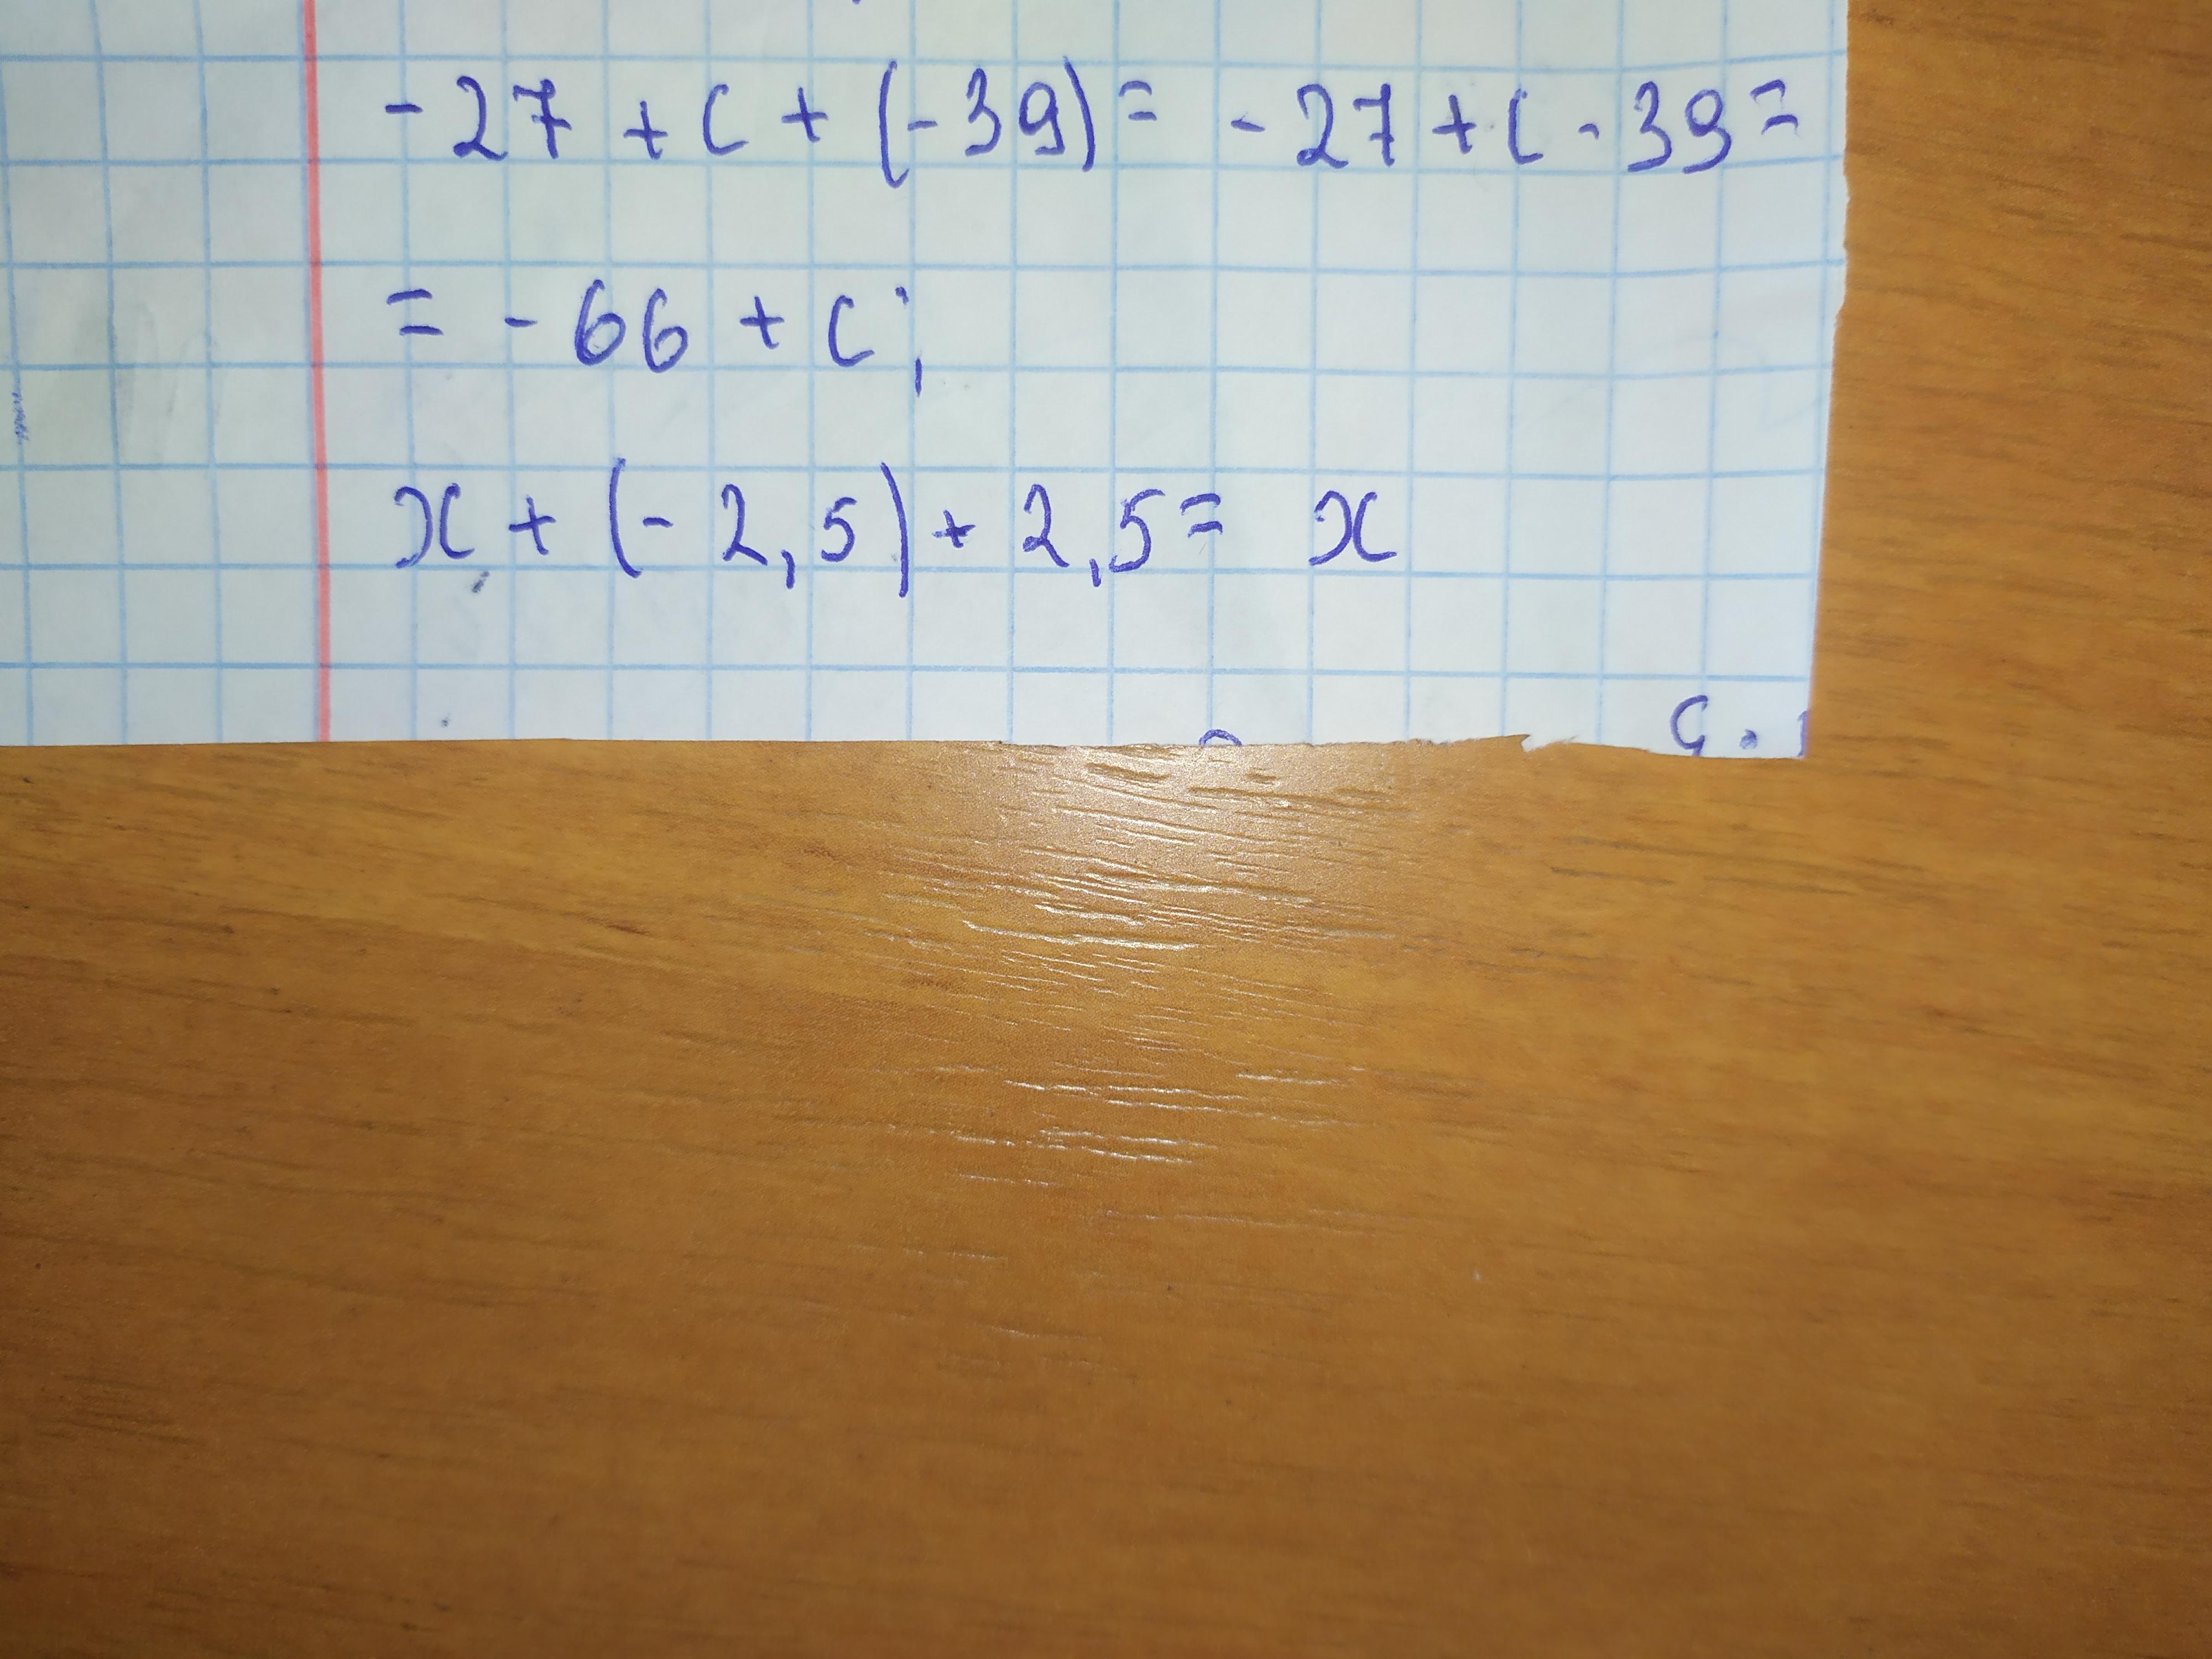 -27 + c + (-39) = -27 + c - 39 =
= -66 + c;
x + (-2,5) + 2,5 = x